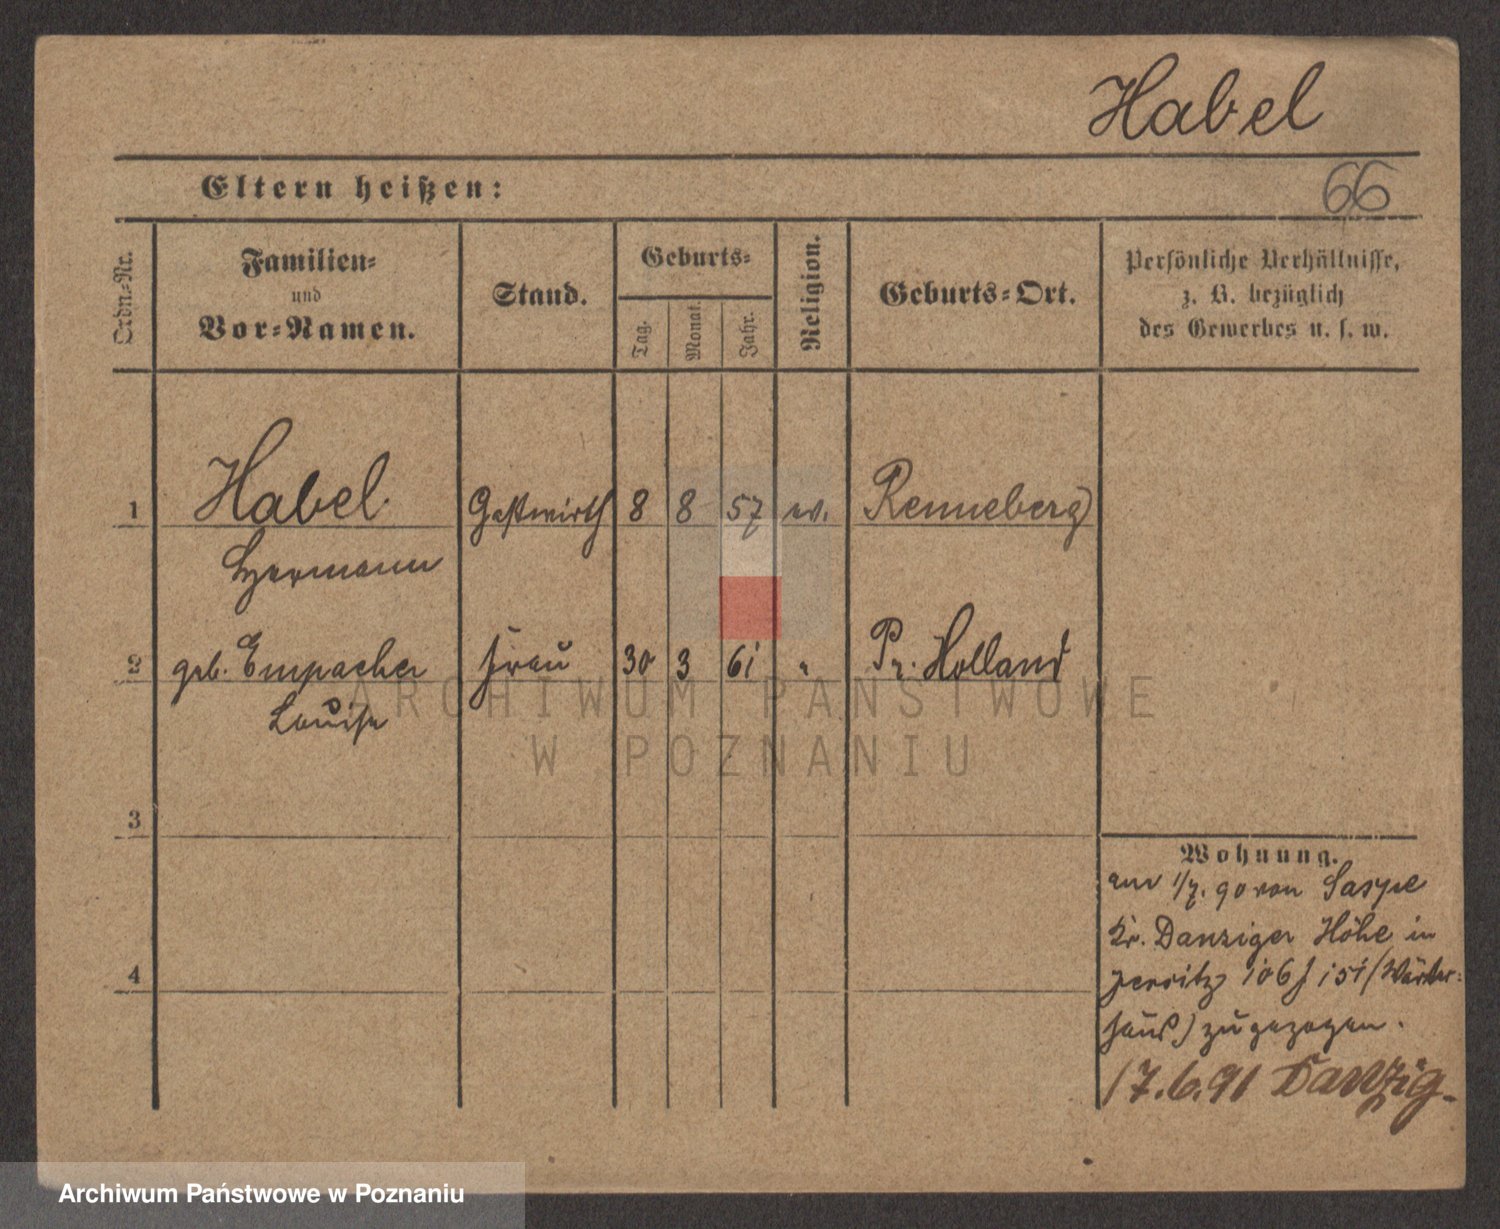 Habel
66
Eltern heißen:
Ordn.=Nr.
Familien=
und
Vor=Namen.
Stand.
Geburts=
Tag.
Monat.
Jahr.
Religion.
Geburts=Ort.
Persönliche Verhältnisse,
z. B. bezüglich
des Gewerbes u. s. w.
1 Habel Gastwirth 8 8 57 ev. Renneberg
Hermann
2 geb. Empacher Frau 30 3 61 " Pr. Holland
Louise
3
4
Wohnung.
am 1/7. 90 von Saspe
Kr. Danziger Höhe in
Jersitz 151 (Wärter=
haus) zugezogen.
17.6.91 Danzig.
ARCHIWUM PAŃSTWOWE
W POZNANIU
Archiwum Państwowe w Poznaniu